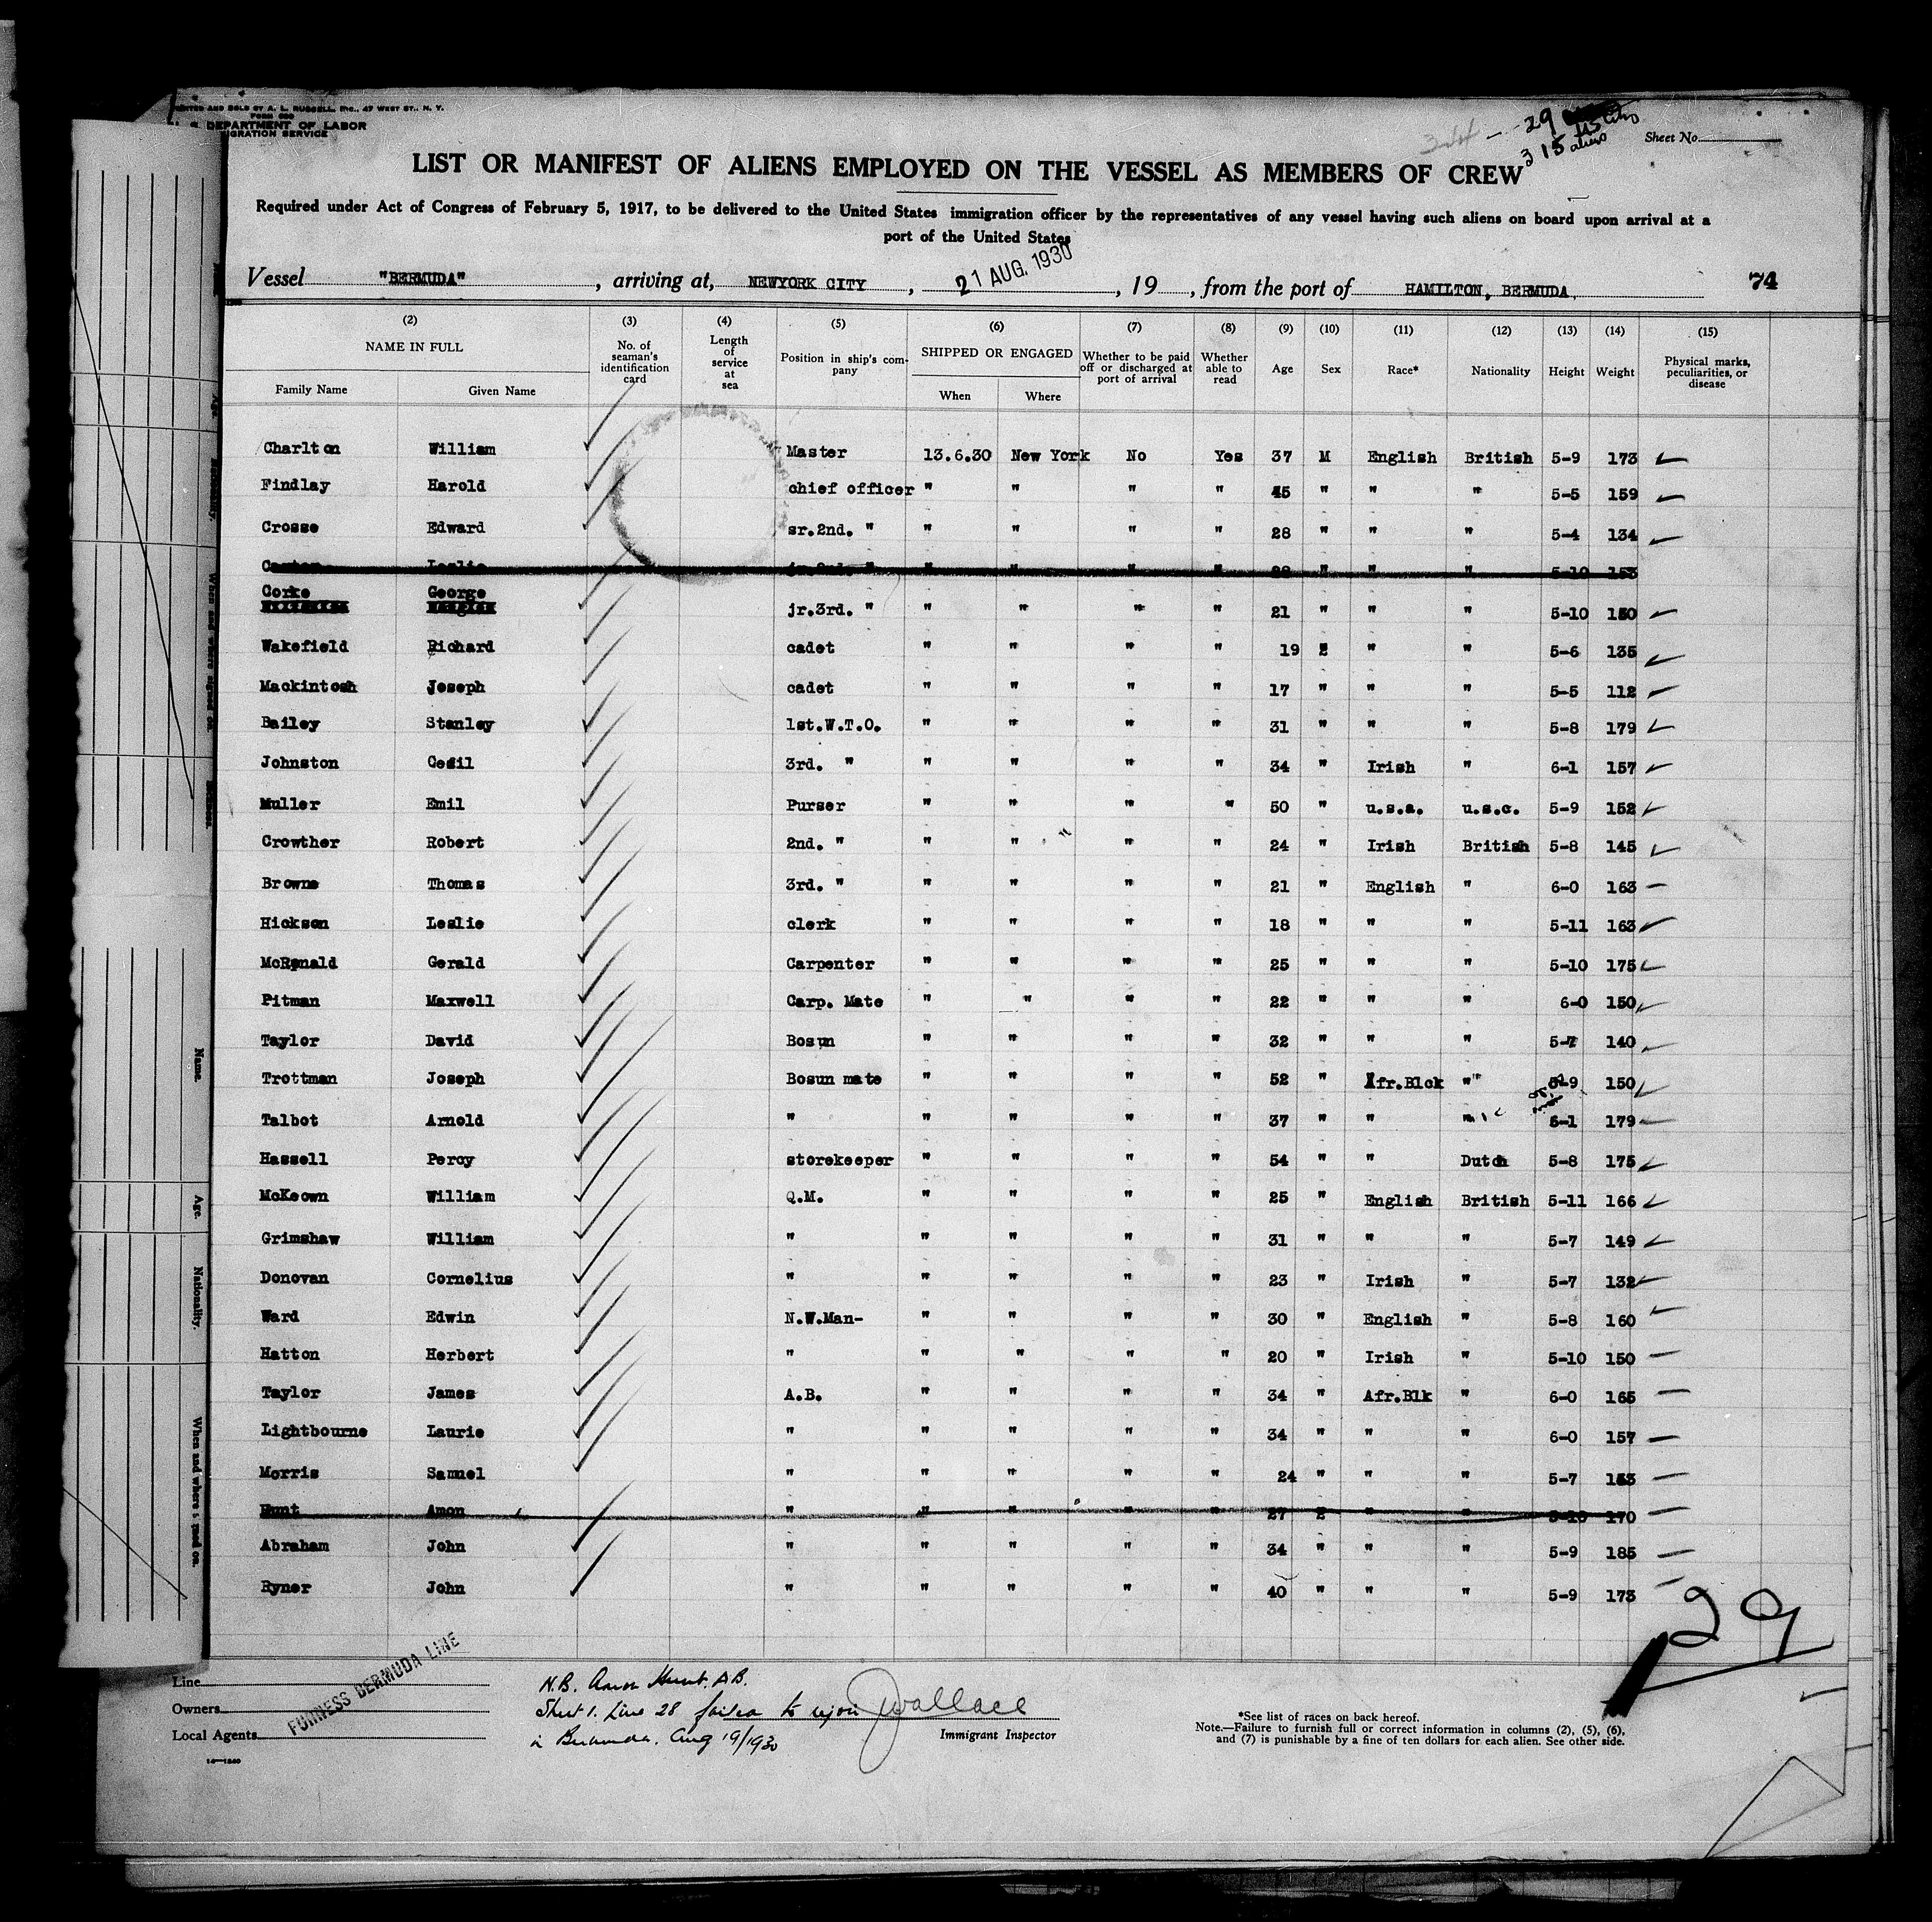 PRINTED AND SOLD BY A. L. RUSSELL, INC., 47 WEST ST., N. Y.
DEPARTMENT OF LABOR
IMMIGRATION SERVICE
34 -- 29
3 15 aliens
Sheet No.
LIST OR MANIFEST OF ALIENS EMPLOYED ON THE VESSEL AS MEMBERS OF CREW
Required under Act of Congress of February 5, 1917, to be delivered to the United States immigration officer by the representatives of any vessel having such aliens on board upon arrival at a
port of the United States
Vessel "BERMUDA", arriving at, NEWYORK CITY, 21 AUG. 1930, 19, from the port of HAMILTON, BERMUDA. 74
(2) (3) (4) (5) (6) (7) (8) (9) (10) (11) (12) (13) (14) (15)
NAME IN FULL No. of seaman's identification card Length of service at sea Position in ship's company SHIPPED OR ENGAGED Whether to be paid off or discharged at port of arrival Whether able to read Age Sex Race* Nationality Height Weight Physical marks, peculiarities, or disease
Family Name Given Name When Where
Charlton William Master 13.6.30 New York No Yes 37 M English British 5-9 173
Findlay Harold chief officer " " " " 45 " " " 5-5 159
Crosse Edward sr.2nd. " " " " " 28 " " " 5-4 134
Leslie jr.2nd. " " " " " 28 " " " 5-10 153
Corke George
jr.3rd. " " " " " 21 " " " 5-10 150
Wakefield Richard cadet " " " " 19 " " " 5-6 135
Mackintosh Joseph cadet " " " " 17 " " " 5-5 112
Bailey Stanley 1st.W.T.O. " " " " 31 " " " 5-8 179
Johnston Cecil 3rd. " " " " " 34 " Irish " 6-1 157
Muller Emil Purser " " " " 50 " u.s.a. u.s.c. 5-9 152
Crowther Robert 2nd. " " " " " 24 " Irish British 5-8 145
Browne Thomas 3rd. " " " " " 21 " English " 6-0 163
Hickson Leslie clerk " " " " 18 " " " 5-11 163
McRonald Gerald Carpenter " " " " 25 " " " 5-10 175
Pitman Maxwell Carp. Mate " " " " 22 " " " 6-0 150
Taylor David Bosun " " " " 32 " " " 5-7 140
Trottman Joseph Bosun mate " " " " 52 " Afr.Blck " 5-9 150
Talbot Arnold " " " " " 37 " " " 6-1 179
Hassell Percy storekeeper " " " " 54 " " Dutch 5-8 175
McKeown William Q.M. " " " " 25 " English British 5-11 166
Grimshaw William " " " " " 31 " " " 5-7 149
Donovan Cornelius " " " " " 23 " Irish " 5-7 132
Ward Edwin N.W.Man- " " " " 30 " English " 5-8 160
Hatton Herbert " " " " " 20 " Irish " 5-10 150
Taylor James A.B. " " " " 34 " Afr.Blk " 6-0 165
Lightbourne Laurie " " " " " 34 " " " 6-0 157
Morris Samuel " " " " " 24 " " " 5-7 153
Hunt Amon " " " " " 27 " " " 5-10 170
Abraham John " " " " " 34 " " " 5-9 185
Ryner John " " " " " 40 " " " 5-9 173
29
Line
Owners
Local Agents
FURNESS BERMUDA LINE
N.B. Amon Hunt. A.B.
Sheet 1. Line 28 failed to rejoin
in Bermuda. Aug 19/1930
JWallace
Immigrant Inspector
*See list of races on back hereof.
Note.—Failure to furnish full or correct information in columns (2), (5), (6),
and (7) is punishable by a fine of ten dollars for each alien. See other side.
Name.
Age.
Nationality.
When and where signed on.